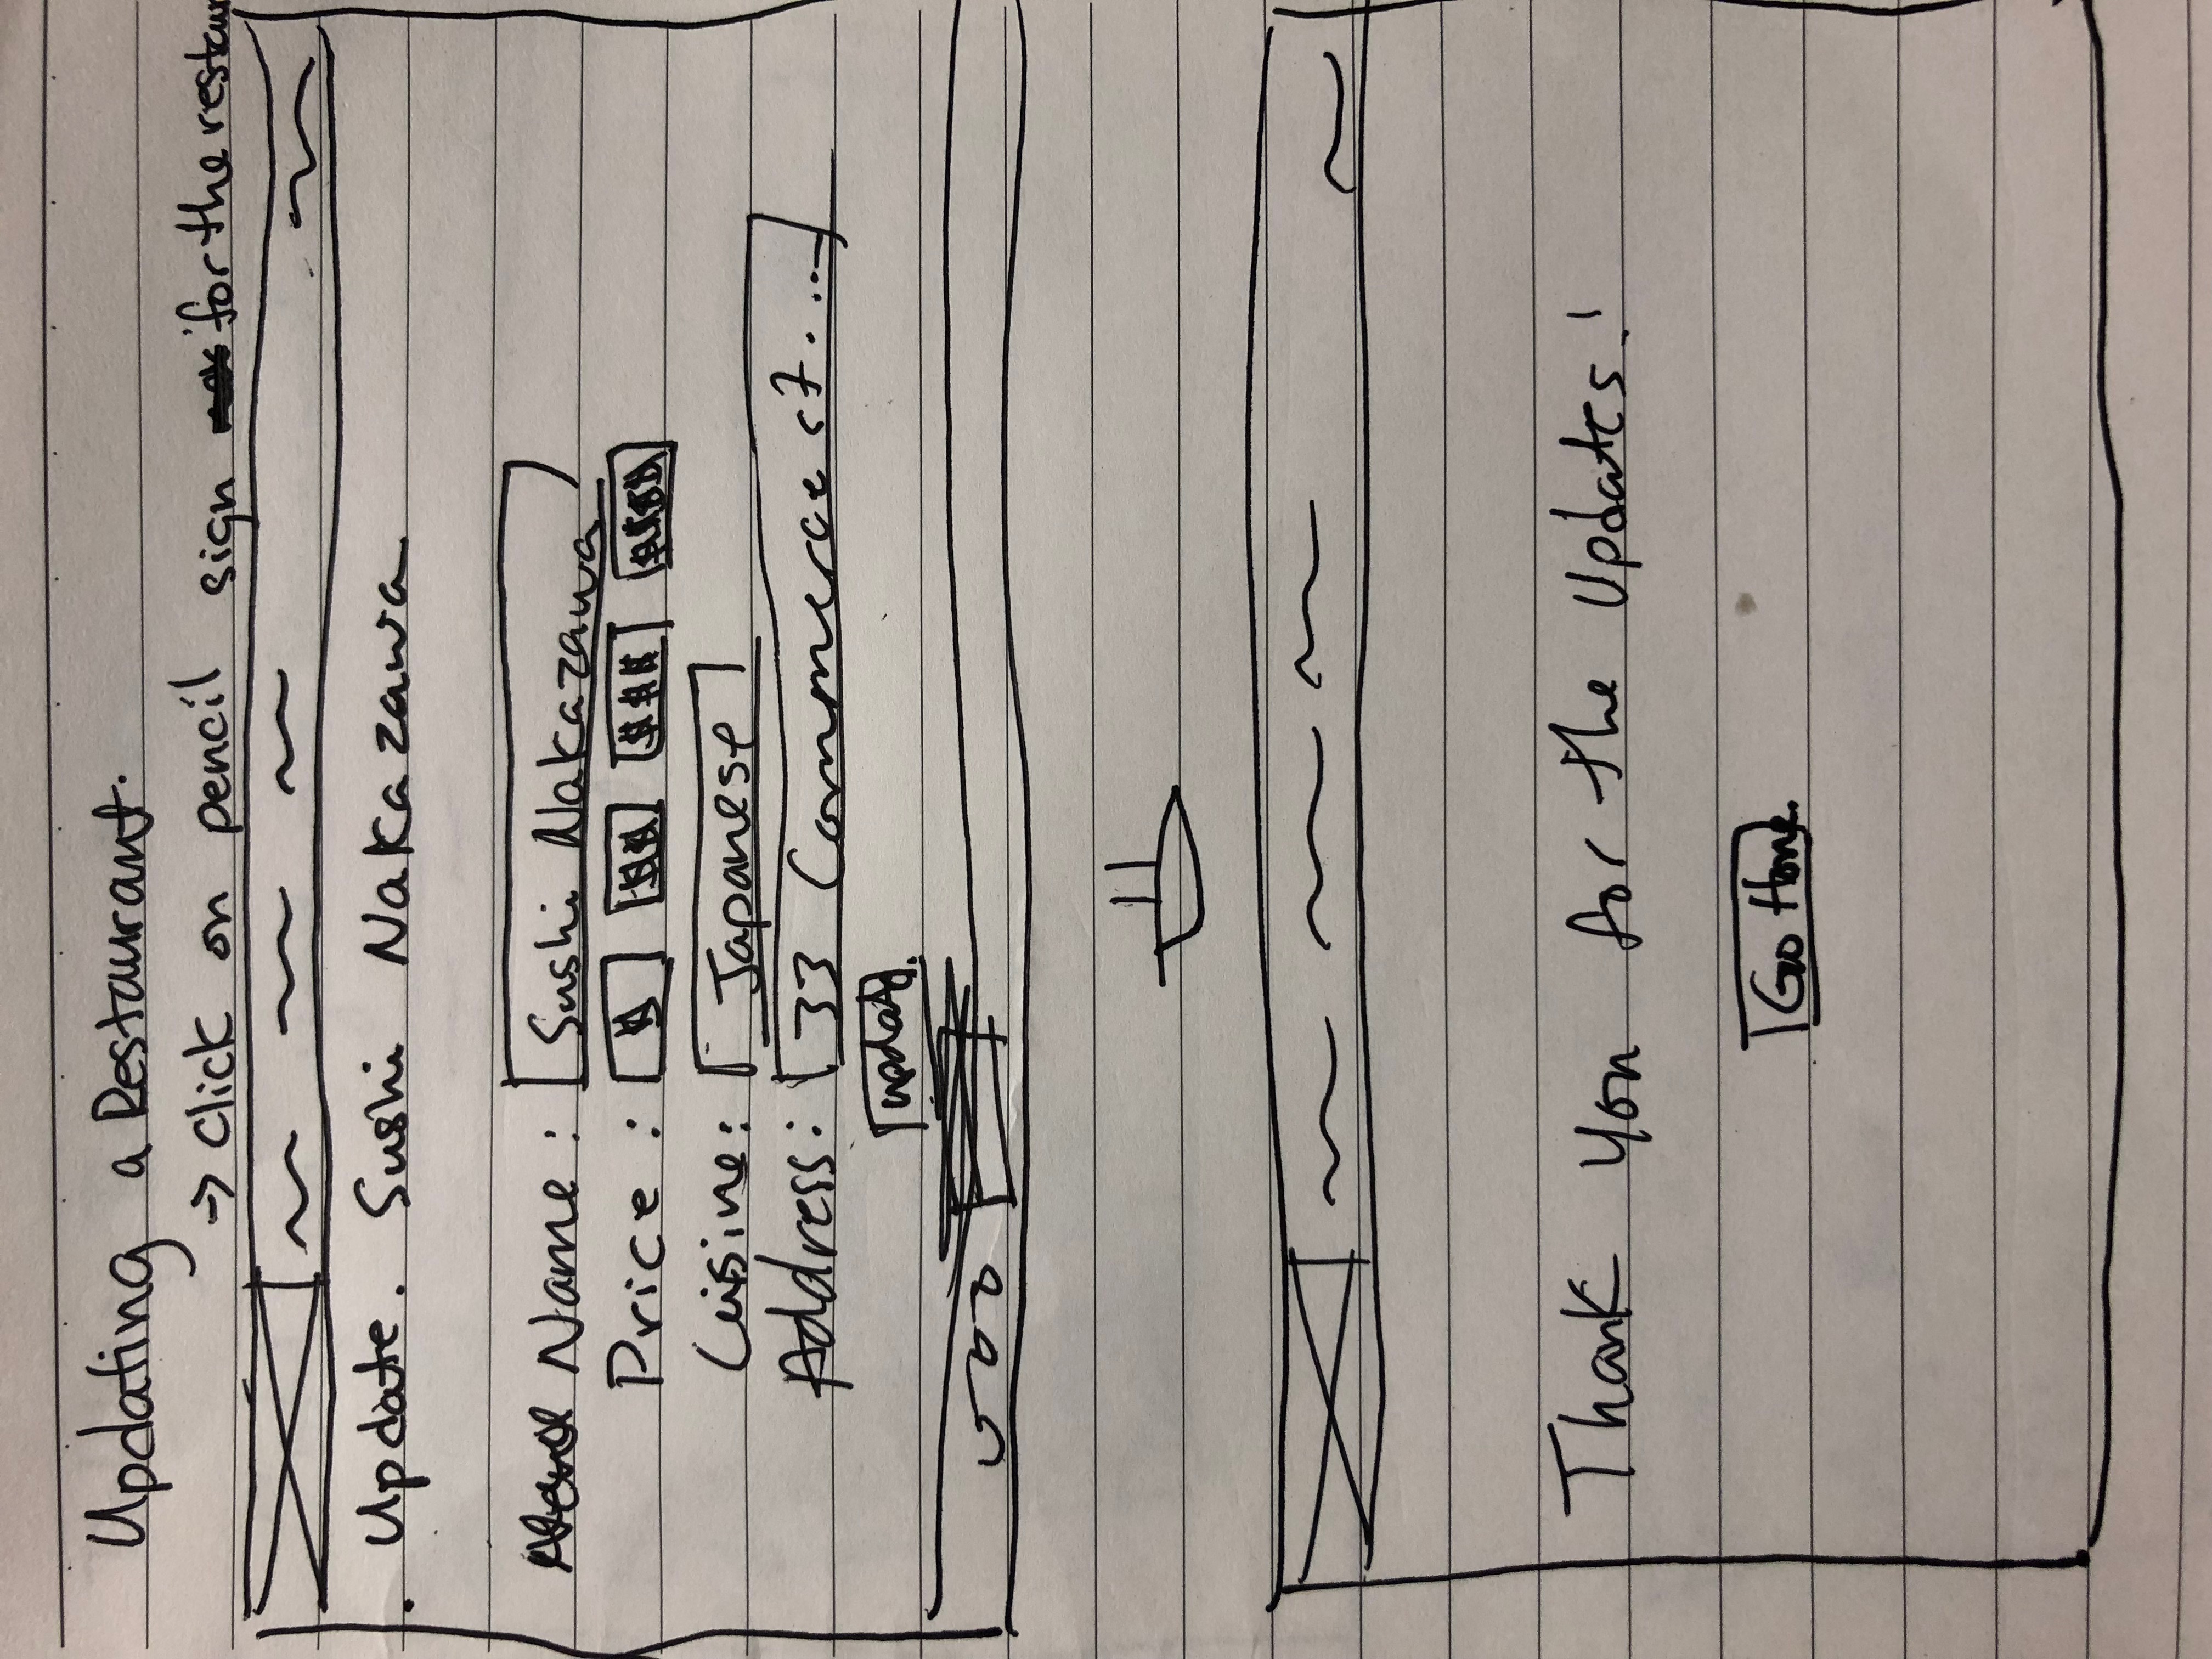 Updating a Restaurant.
→ Click on pencil sign for the restaur
. Update. Sushi Nakazawa
Name : Sushi Nakazawa
Price : $ $$ $$$ $$$$
Cuisine: Japanese
Address: 33 Commerce st. ...
update.
Thank you for the Updates!
Go Home.